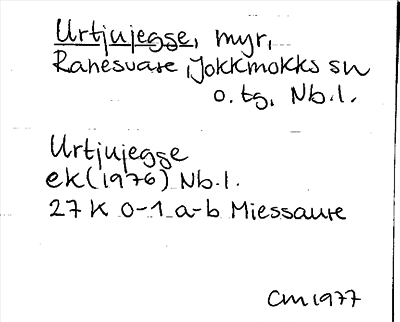 Urtjujegge, myr,
Ranesvare, Jokkmokks sn
o. tg, Nb.l.
Urtjujegge
ek(1976) Nb.l.
27 K 0-1 a-b Miessaure
CM 1977